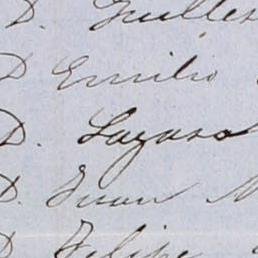 D. Guiller
D Emilio
D. Lazaro
D. Juan M
D Felipe